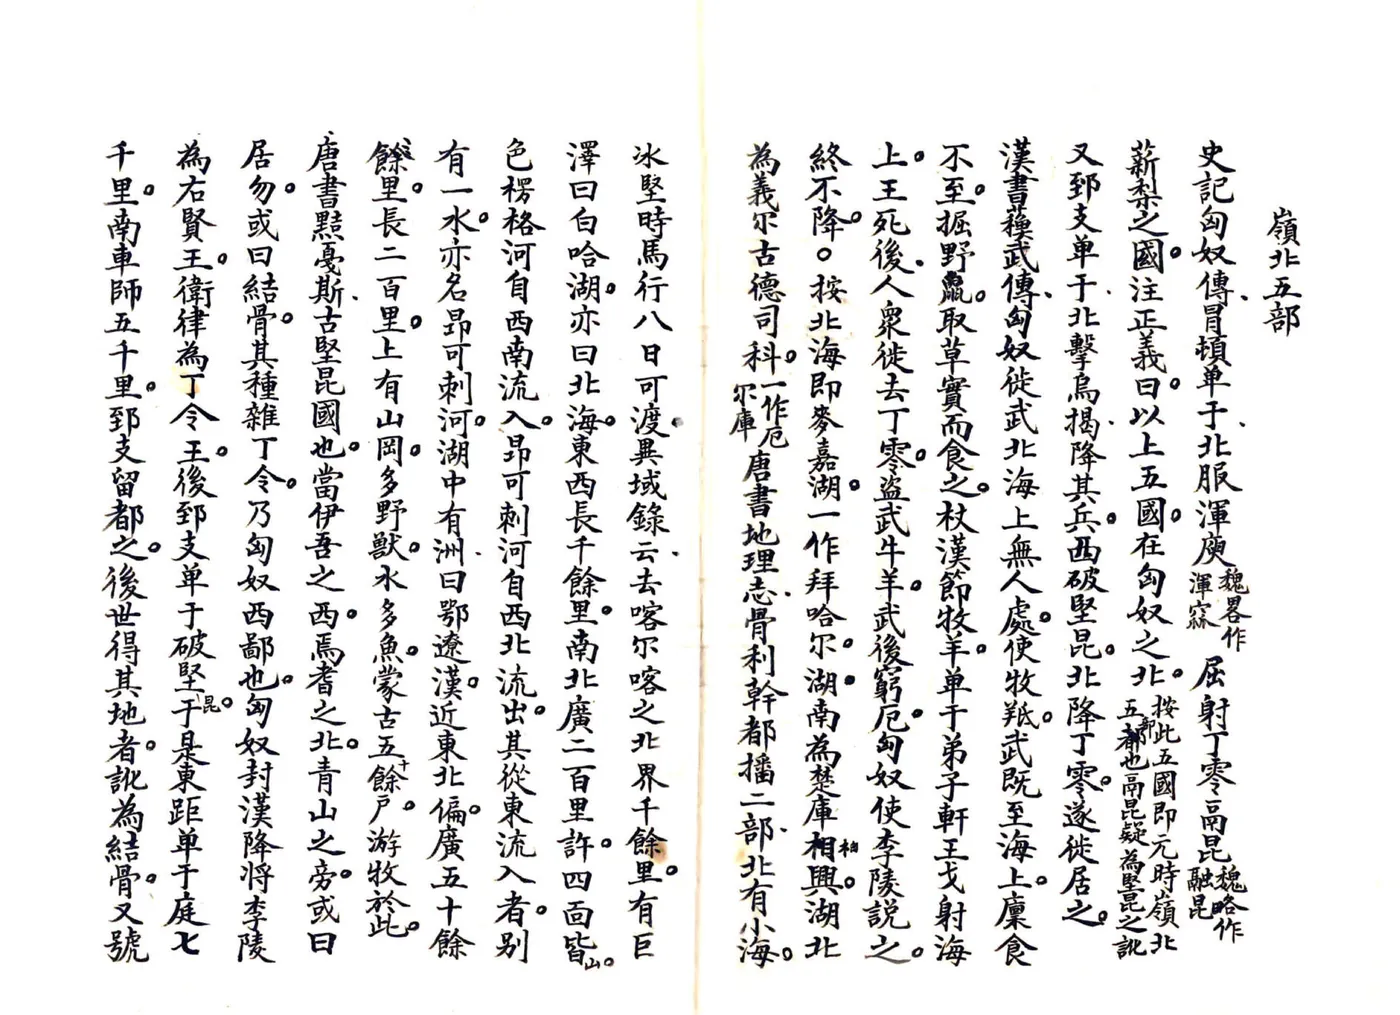 嶺北五部
史記匈奴傳冒頓單于北服渾庾魏畧作渾窳屈射丁零鬲昆魏略作融昆
薪梨之國注正義曰以上五國在匈奴之北按此五國即元時嶺北五部也鬲昆疑為堅昆之訛
又郅支单于北擊烏揭降其兵西破堅昆北降丁零遂徙居之
漢書蘓武傳匈奴徙武北海上無人處使牧羝武既至海上廩食
不至掘野鼠取草實而食之杖漢節牧羊单于弟子軒王弋射海
上王死後人衆徙去丁零盜武牛羊武後窮厄匈奴使李陵說之
終不降○按北海即麥嘉湖一作拜哈尔湖南為楚庫柏興湖北
為義尔古德司科一作厄尔庫唐書地理志骨利幹都播二部北有小海
冰堅時馬行八日可渡異域錄云去喀尔喀之北界千餘里有巨
澤曰白哈湖亦曰北海東西長千餘里南北廣二百里許四面皆山
色楞格河自西南流入昂可刺河自西北流出其從東流入者别
有一水亦名昂可刺河湖中有洲曰鄂遼漢近東北偏廣五十餘
餘里長二百里上有山岡多野獸水多魚蒙古五十餘戶游牧於此
唐書黠戛斯古堅昆國也當伊吾之西焉耆之北青山之旁或曰
居勿或曰結骨其種雜丁令乃匈奴西鄙也匈奴封漢降将李陵
為右賢王衛律為丁令王後郅支单于破堅昆于是東距单于庭七
千里南車師五千里郅支留都之後世得其地者訛為結骨又號